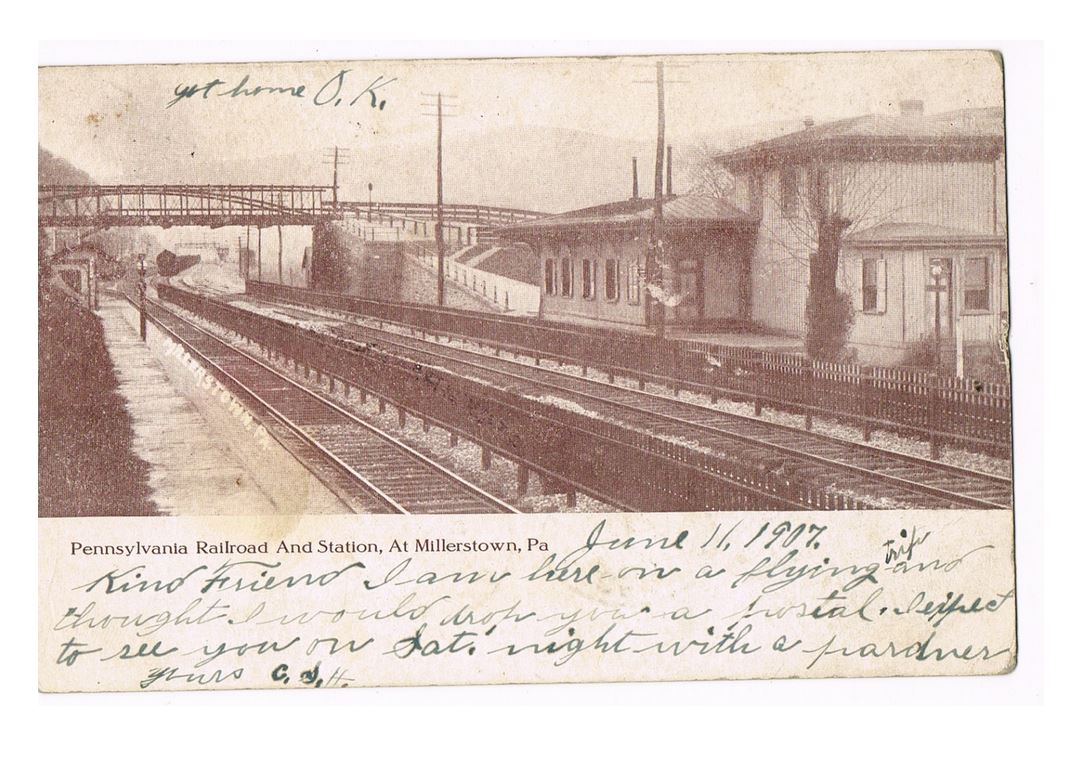 got home O. K.
Pennsylvania Railroad And Station, At Millerstown, Pa
June 11, 1907.
trip
Kind Friend I am here on a flying and
thought I would drop you a postal. I expect
to see you on Sat. night with a pardner
yours C. S. H.